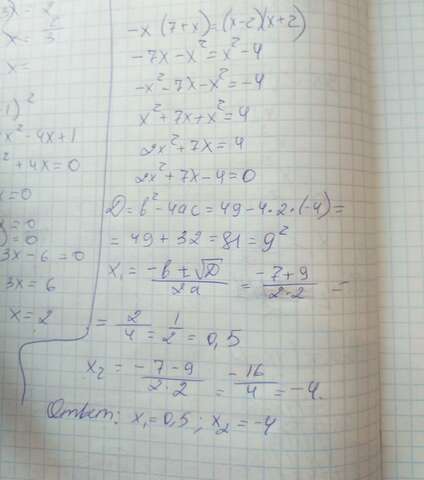 3) x = 2
x = 2/3
x =
1)²
x² - 4x + 1
² + 4x = 0
x = 0
x = 0
) = 0
3x - 6 = 0
3x = 6
x = 2
-x (7 + x) = (x - 2)(x + 2)
-7x - x² = x² - 4
-x² - 7x - x² = -4
x² + 7x + x² = 4
2x² + 7x = 4
2x² + 7x - 4 = 0
D = b² - 4ac = 49 - 4 · 2 · (-4) =
= 49 + 32 = 81 = 9²
x₁ = (-b ± √D)/(2a) = (-7 + 9)/(2 · 2) =
= 2/4 = 1/2 = 0,5
x₂ = (-7 - 9)/(2 · 2) = -16/4 = -4.
Ответ: x₁ = 0,5 ; x₂ = -4